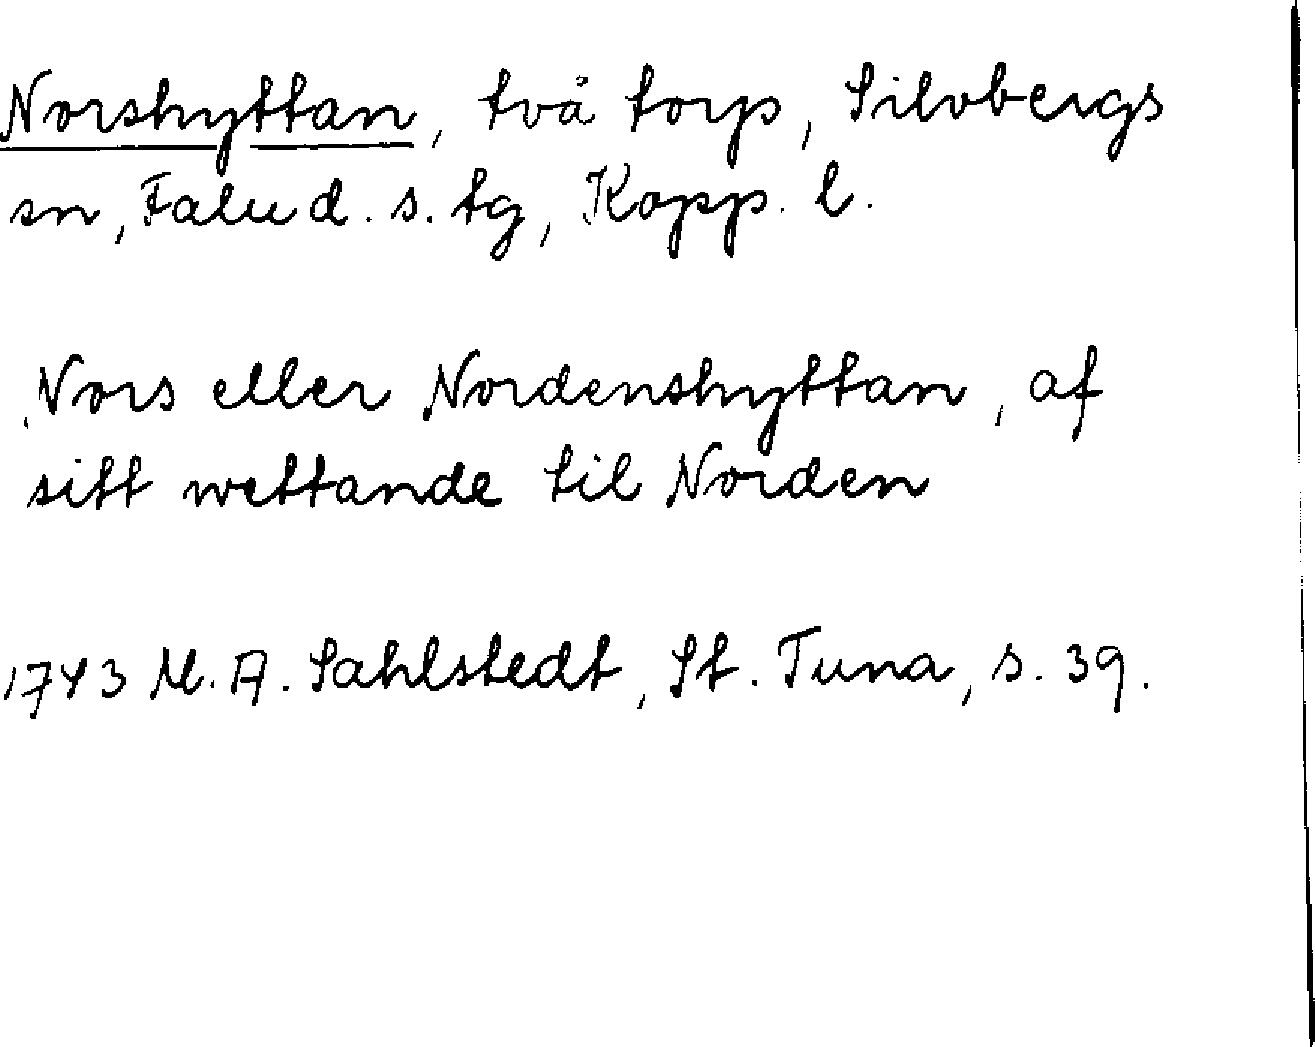 Norshyttan, två torp, Silvbergs
sn, Falu d. s. tg, Kopp. l.
Nors eller Nordenshyttan, af
sitt wettande til Norden
1743 M. A. Sahlstedt, St. Tuna, s. 39.